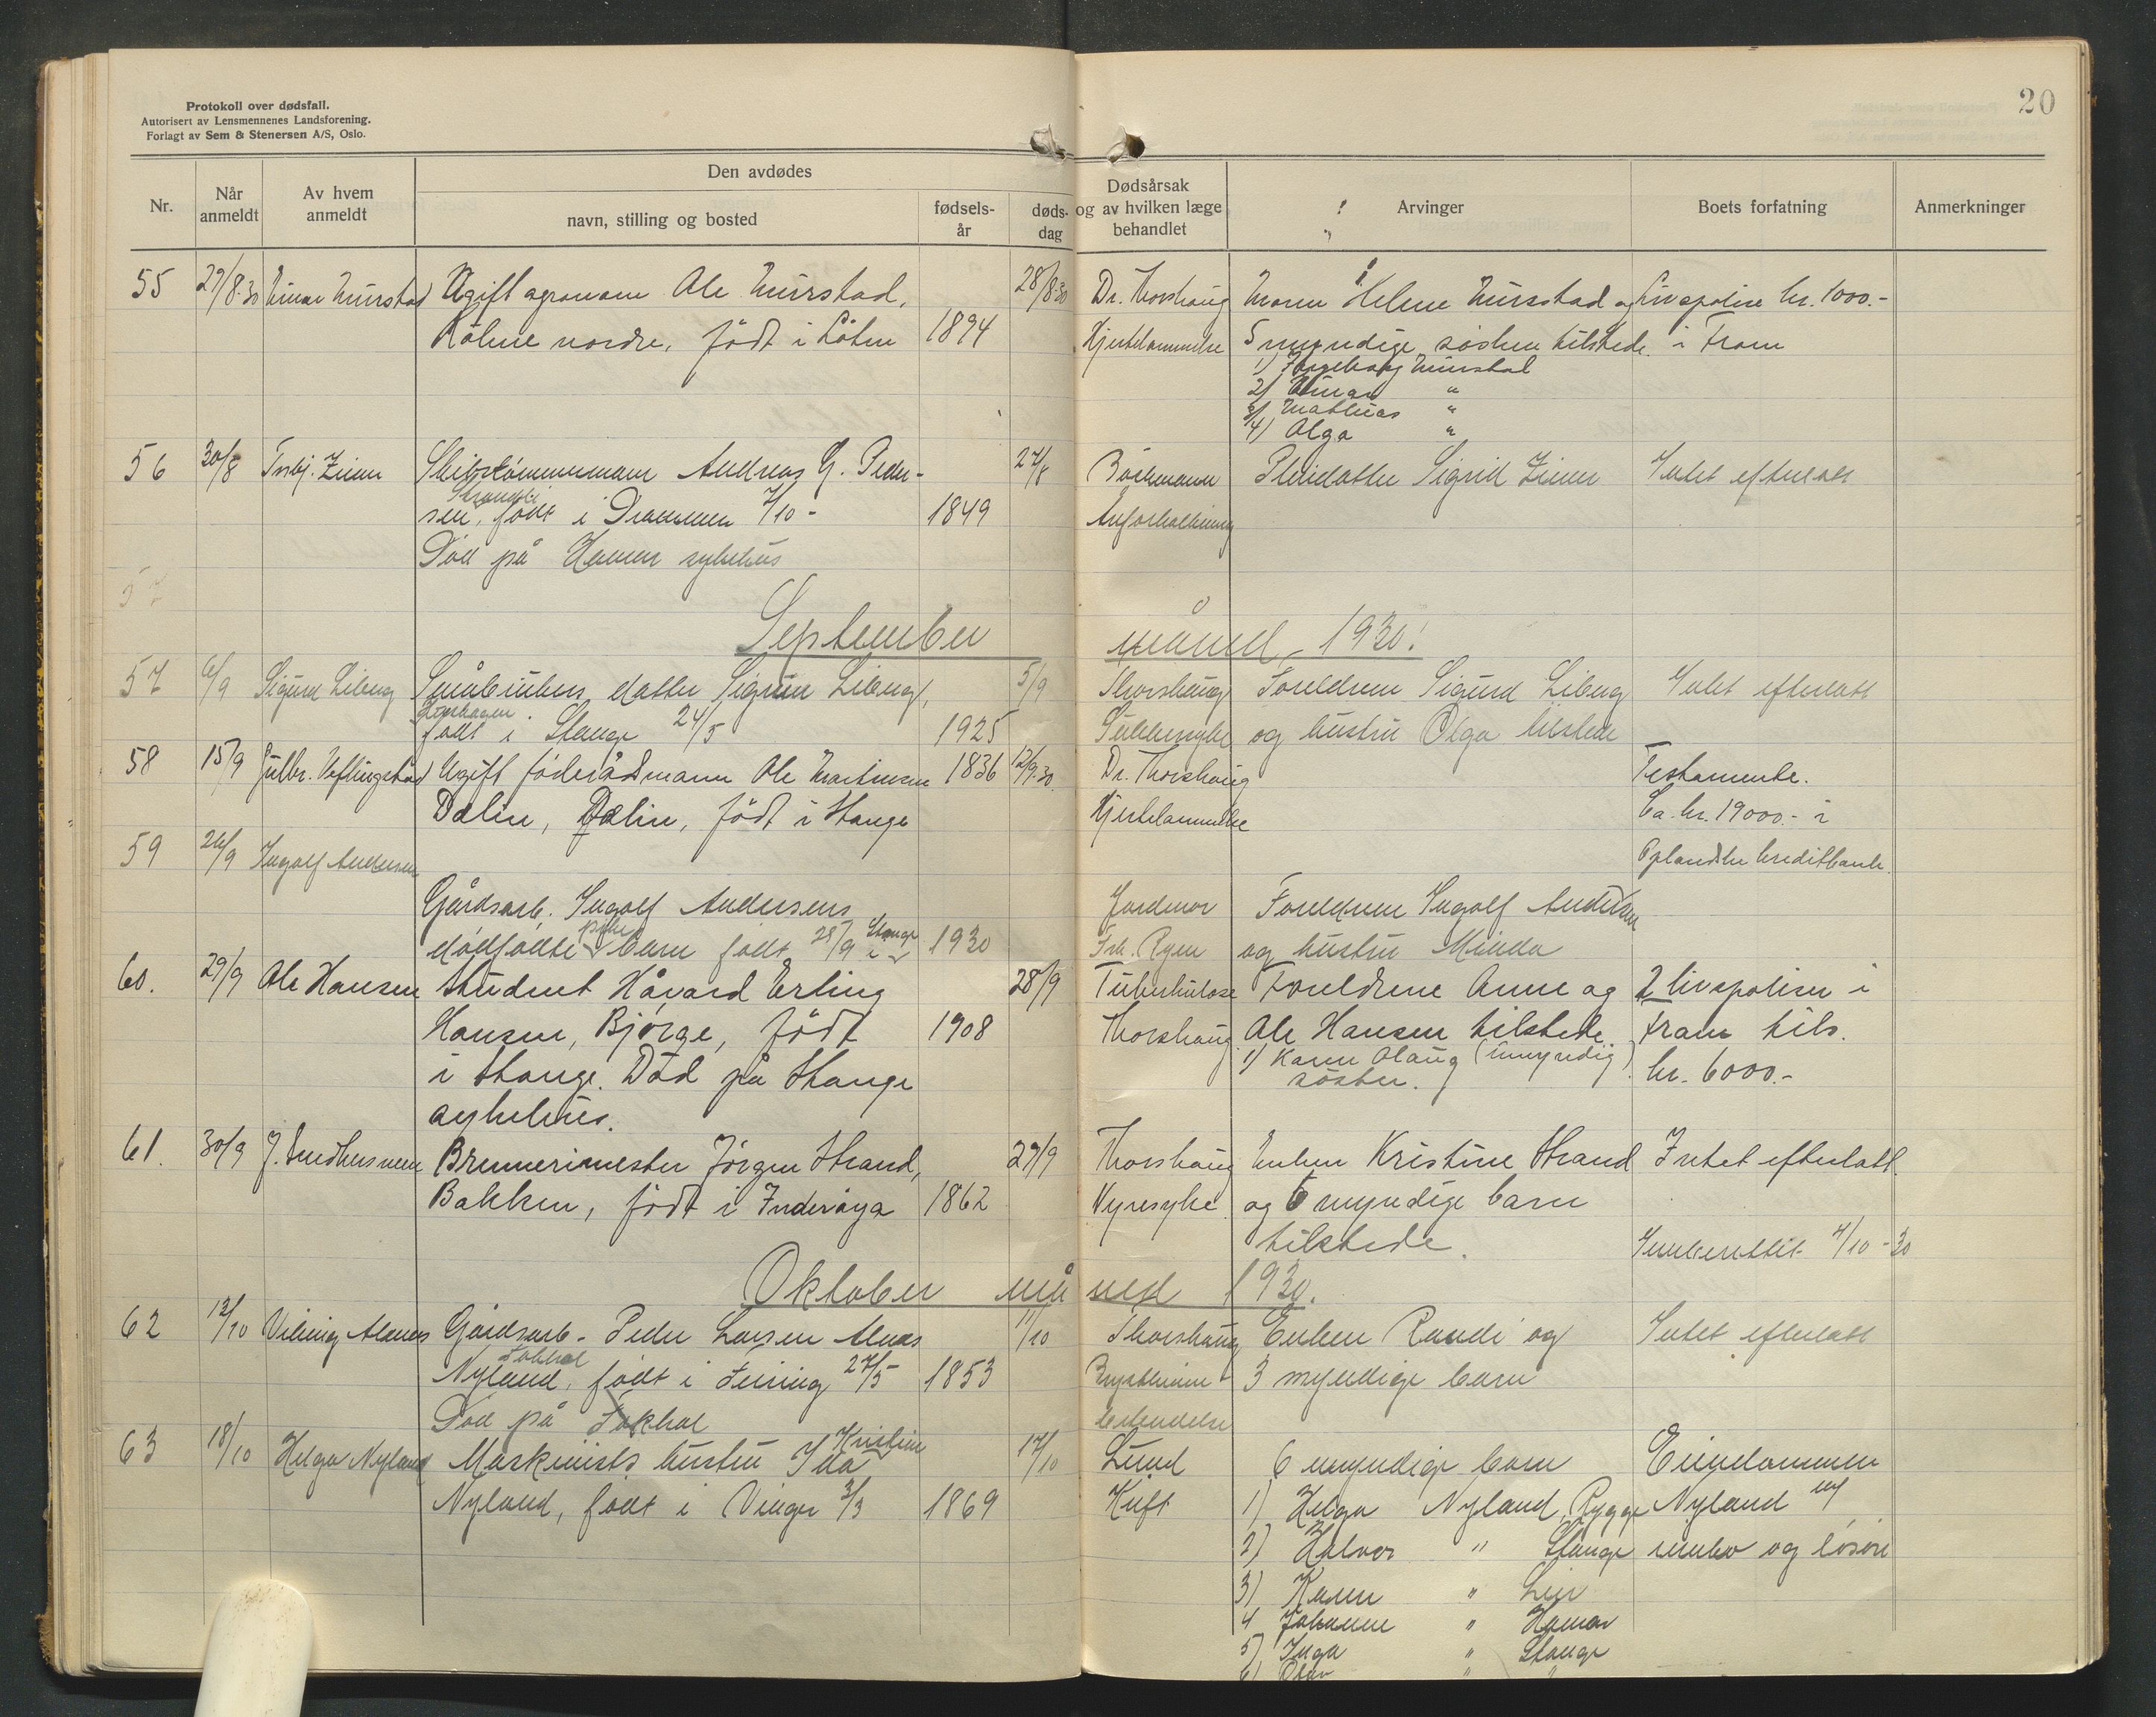 Protokoll over dødsfall.
Autorisert av Lensmennenes Landsforening.
Forlagt av Sem & Stenersen A/S, Oslo.
20
Nr.
Når anmeldt
Av hvem anmeldt
Den avdødes
navn, stilling og bosted
fødsels-år
døds-dag
Dødsårsak og av hvilken læge behandlet
Arvinger
Boets forfatning
Anmerkninger
55 29/8-30 Einar Murstad Ugift agronom Ole Murstad, 28/8-30 Dr. Thorshaug Moren Helene Murstad og Livspolise kr. 1000.-
nordre, född i Löten 1894 Hjertelammelse 5 myndige søsken tilstede. i Fram
1) Ingeborg Murstad
2) Einar "
3) Mathias "
4) Olga "
56 30/8 Torbj. Andreas G. Peder- 27/8 Pleiedatter Sigrid Intet efterlatt
sen, født i Drammen 7/10 - 1849 Åreforkalkning
Död på Hamar sykehus
57
September måned 1930.
57 6/9 Sigurd Liberg Småbrukers datter Sigrun Liberg, 5/9 Thorshaug Foreldrene Sigurd Liberg Intet efterlatt
født i Stange 24/5 1925 Sukkersyke og hustru Olga tilstede
58 15/9 Gulbr. Veflingstad Ugift föderådsmann Ole Martinsen 1836 12/9-30. Dr. Thorshaug Testamente.
Dælin, Dælin, född i Stange Hjertelammelse Ca. kr. 19000.- i
59 26/9 Ingolf Andersen Oplandske Kreditbank.
Gårdsarb. Ingolf Andersens Jordmor Foreldrene Ingolf Andersen
dødfødte pike barn født 28/9 i Stange 1930 Frk. Ryen og hustru Minda
60. 29/9 Ole Hansen Student Håvard Erling 28/9 Tuberkulose Foreldrene Anne og 2 livspoliser i
Hansen, Bjørge, född 1908 Thorshaug Ole Hansen tilstede. Fram tils.
i Stange. Död på Stange 1) Karen Olaug (umyndig) söster. kr. 6000.-
sykehus.
61. 30/9 J. Smedhusmoen Brennerimester Jörgen Strand, 29/9 Thorshaug Enken Kristine Strand Intet efterlatt.
Bakken, född i Inderöya 1862 Nyresyke og 6 myndige barn
tilstede. 4/10-30
Oktober måned 1930.
62 12/10 Viking Alnæs Gårdsarb. Peder Larsen Alnæs 11/10 Thorshaug Enken Randi og Intet efterlatt
Nyland, Tokhol født i Feiring 27/5 1853 Brysthinne- 3 myndige barn
Död på Tokhol betendelse
63 18/10 Helga Nyland Maskinists hustru Ida Kristine 17/10 Lund 6 myndige barn Eiendommen
Nyland, født i Vinger 3/3 1869 Kreft 1) Helga Nyland, Rygge Nyland m/
2) Halvor " Stange innbo og løsøre
3) Karen " Lier
4 Johanne " Hamar
5) Inga " Stange
6) Olav " "